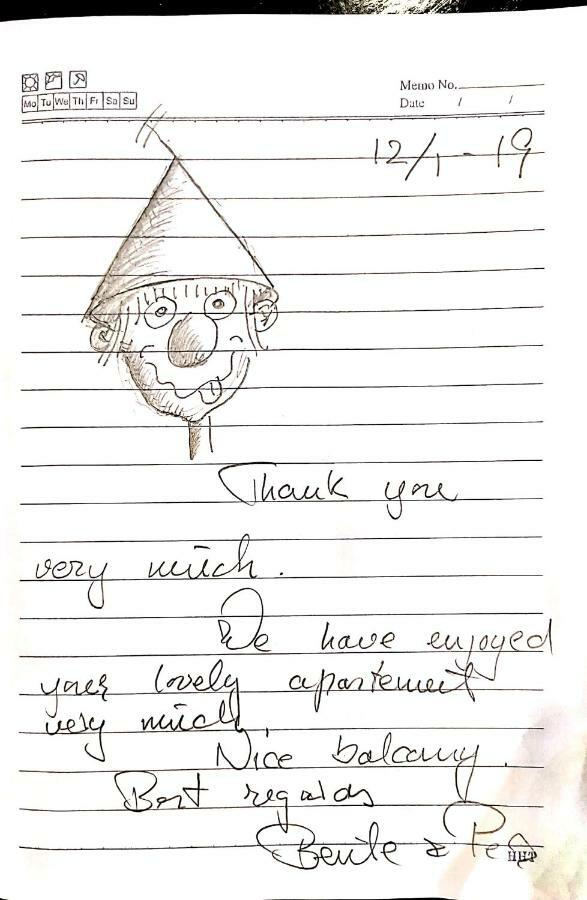 Memo No.
Mo Tu We Th Fr Sa Su
Date / /
12/1-19
Thank you
very much.
We have enjoyed
your lovely apartement
very much.
Nice balcony.
Best regards
Bente &
HHP